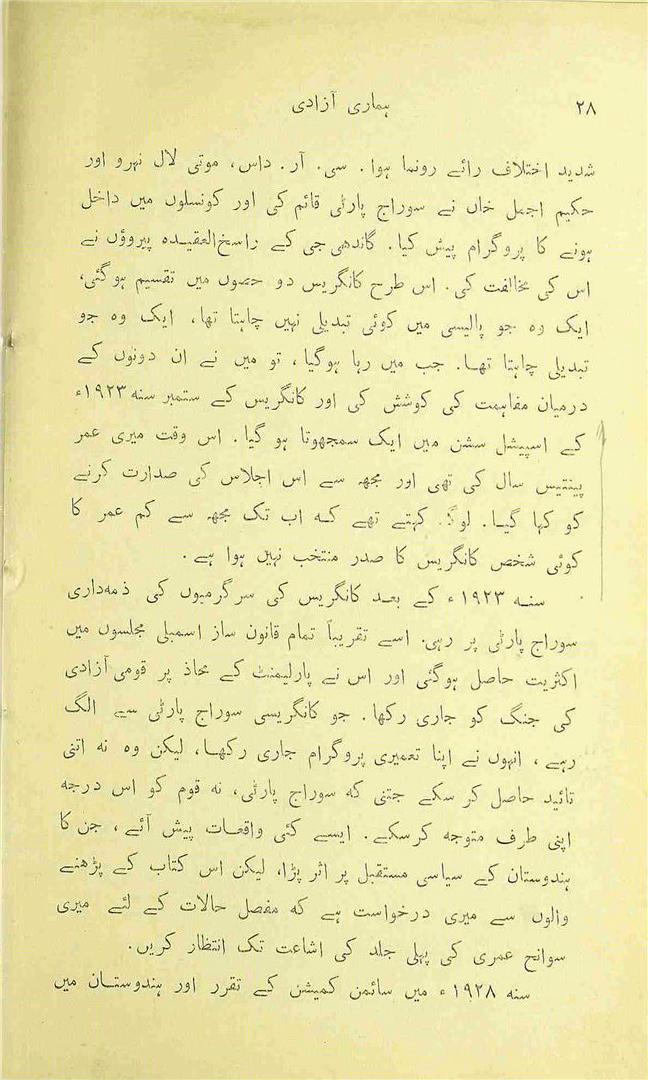 ۲۸
ہماری آزادی
شدید اختلاف رائے رونما ہوا۔ سی۔ آر۔ داس، موتی لال نہرو اور
حکیم اجمل خاں نے سوراج پارٹی قائم کی اور کونسلوں میں داخل
ہونے کا پروگرام پیش کیا۔ گاندھی جی کے راسخ العقیدہ پیروؤں نے
اس کی مخالفت کی۔ اس طرح کانگریس دو حصوں میں تقسیم ہوگئی،
ایک وہ جو پالیسی میں کوئی تبدیلی نہیں چاہتا تھا، ایک وہ جو
تبدیلی چاہتا تھا۔ جب میں رہا ہوگیا، تو میں نے ان دونوں کے
درمیان مفاہمت کی کوشش کی اور کانگریس کے ستمبر سنہ ۱۹۲۳ء
کے اسپیشل سشن میں ایک سمجھوتا ہو گیا۔ اس وقت میری عمر
پینتیس سال کی تھی اور مجھ سے اس اجلاس کی صدارت کرنے
کو کہا گیا۔ لوگ کہتے تھے کہ اب تک مجھ سے کم عمر کا
کوئی شخص کانگریس کا صدر منتخب نہیں ہوا ہے۔
سنہ ۱۹۲۳ء کے بعد کانگریس کی سرگرمیوں کی ذمہ‌داری
سوراج پارٹی پر رہی۔ اسے تقریباً تمام قانون ساز اسمبلی مجلسوں میں
اکثریت حاصل ہوگئی اور اس نے پارلیمنٹ کے محاذ پر قومی آزادی
کی جنگ کو جاری رکھا۔ جو کانگریسی سوراج پارٹی سے الگ
رہے، انہوں نے اپنا تعمیری پروگرام جاری رکھا، لیکن وہ نہ اتنی
تائید حاصل کر سکے جتنی کہ سوراج پارٹی، نہ قوم کو اس درجہ
اپنی طرف متوجہ کرسکے۔ ایسے کئی واقعات پیش آئے، جن کا
ہندوستان کے سیاسی مستقبل پر اثر پڑا، لیکن اس کتاب کے پڑھنے
والوں سے میری درخواست ہے کہ مفصل حالات کے لئے میری
سوانح عمری کی پہلی جلد کی اشاعت تک انتظار کریں۔
سنہ ۱۹۲۸ء میں سائمن کمیشن کے تقرر اور ہندوستان میں